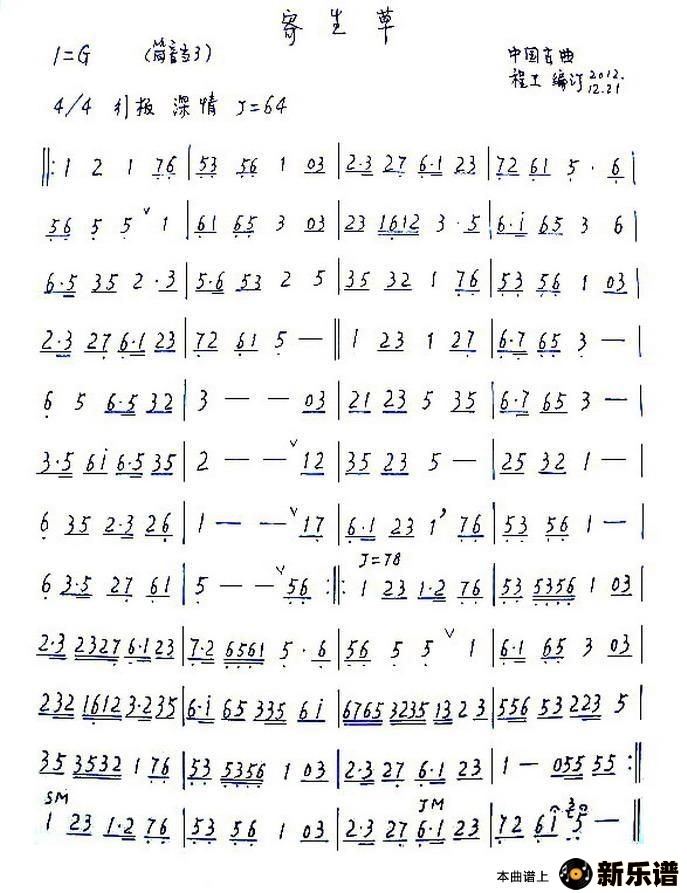 寄生草
1=G (筒音当3) 中国古曲
程工 编订 2012.
12.21
4/4 引板 深情 ♩=64
‖: 1 2 1 76 | 53 56 1 03 | 2·3 27 6·1 23 | 72 61 5 · 6 |
56 5 5 ∨ 1 | 61 65 3 03 | 23 1612 3 · 5 | 6·i 65 3 6 |
6·5 35 2 · 3 | 5·6 53 2 5 | 35 32 1 76 | 53 56 1 03 |
2·3 27 6·1 23 | 72 61 5 — ‖ 1 23 1 27 | 6·7 65 3 — |
6 5 6·5 32 | 3 — — 03 | 21 23 5 35 | 6·7 65 3 — |
3·5 6i 6·5 35 | 2 — — ∨ 12 | 35 23 5 — | 25 32 1 — |
6 35 2·3 26 | 1 — — ∨ 17 | 6·1 23 1 ’ 76 | 53 56 1 — |
♩=78
6 3·5 27 61 | 5 — — ∨ 56 :‖: 1 23 1·2 76 | 53 5356 1 03 |
2·3 2327 6·1 23 | 7·2 6561 5 · 6 | 56 5 5 ∨ 1 | 6·1 65 3 03 |
232 1612 3·235 | 6·i 65 335 6i | 6765 3235 13 2 3 | 556 53 223 5 |
35 3532 1 76 | 53 5356 1 03 | 2·3 27 6·1 23 | 1 — 055 55 :‖
SM JM
1 23 1·2 76 | 53 56 1 03 | 2·3 27 6·1 23 | 72 6i 5 — ‖
本曲谱上 新乐谱